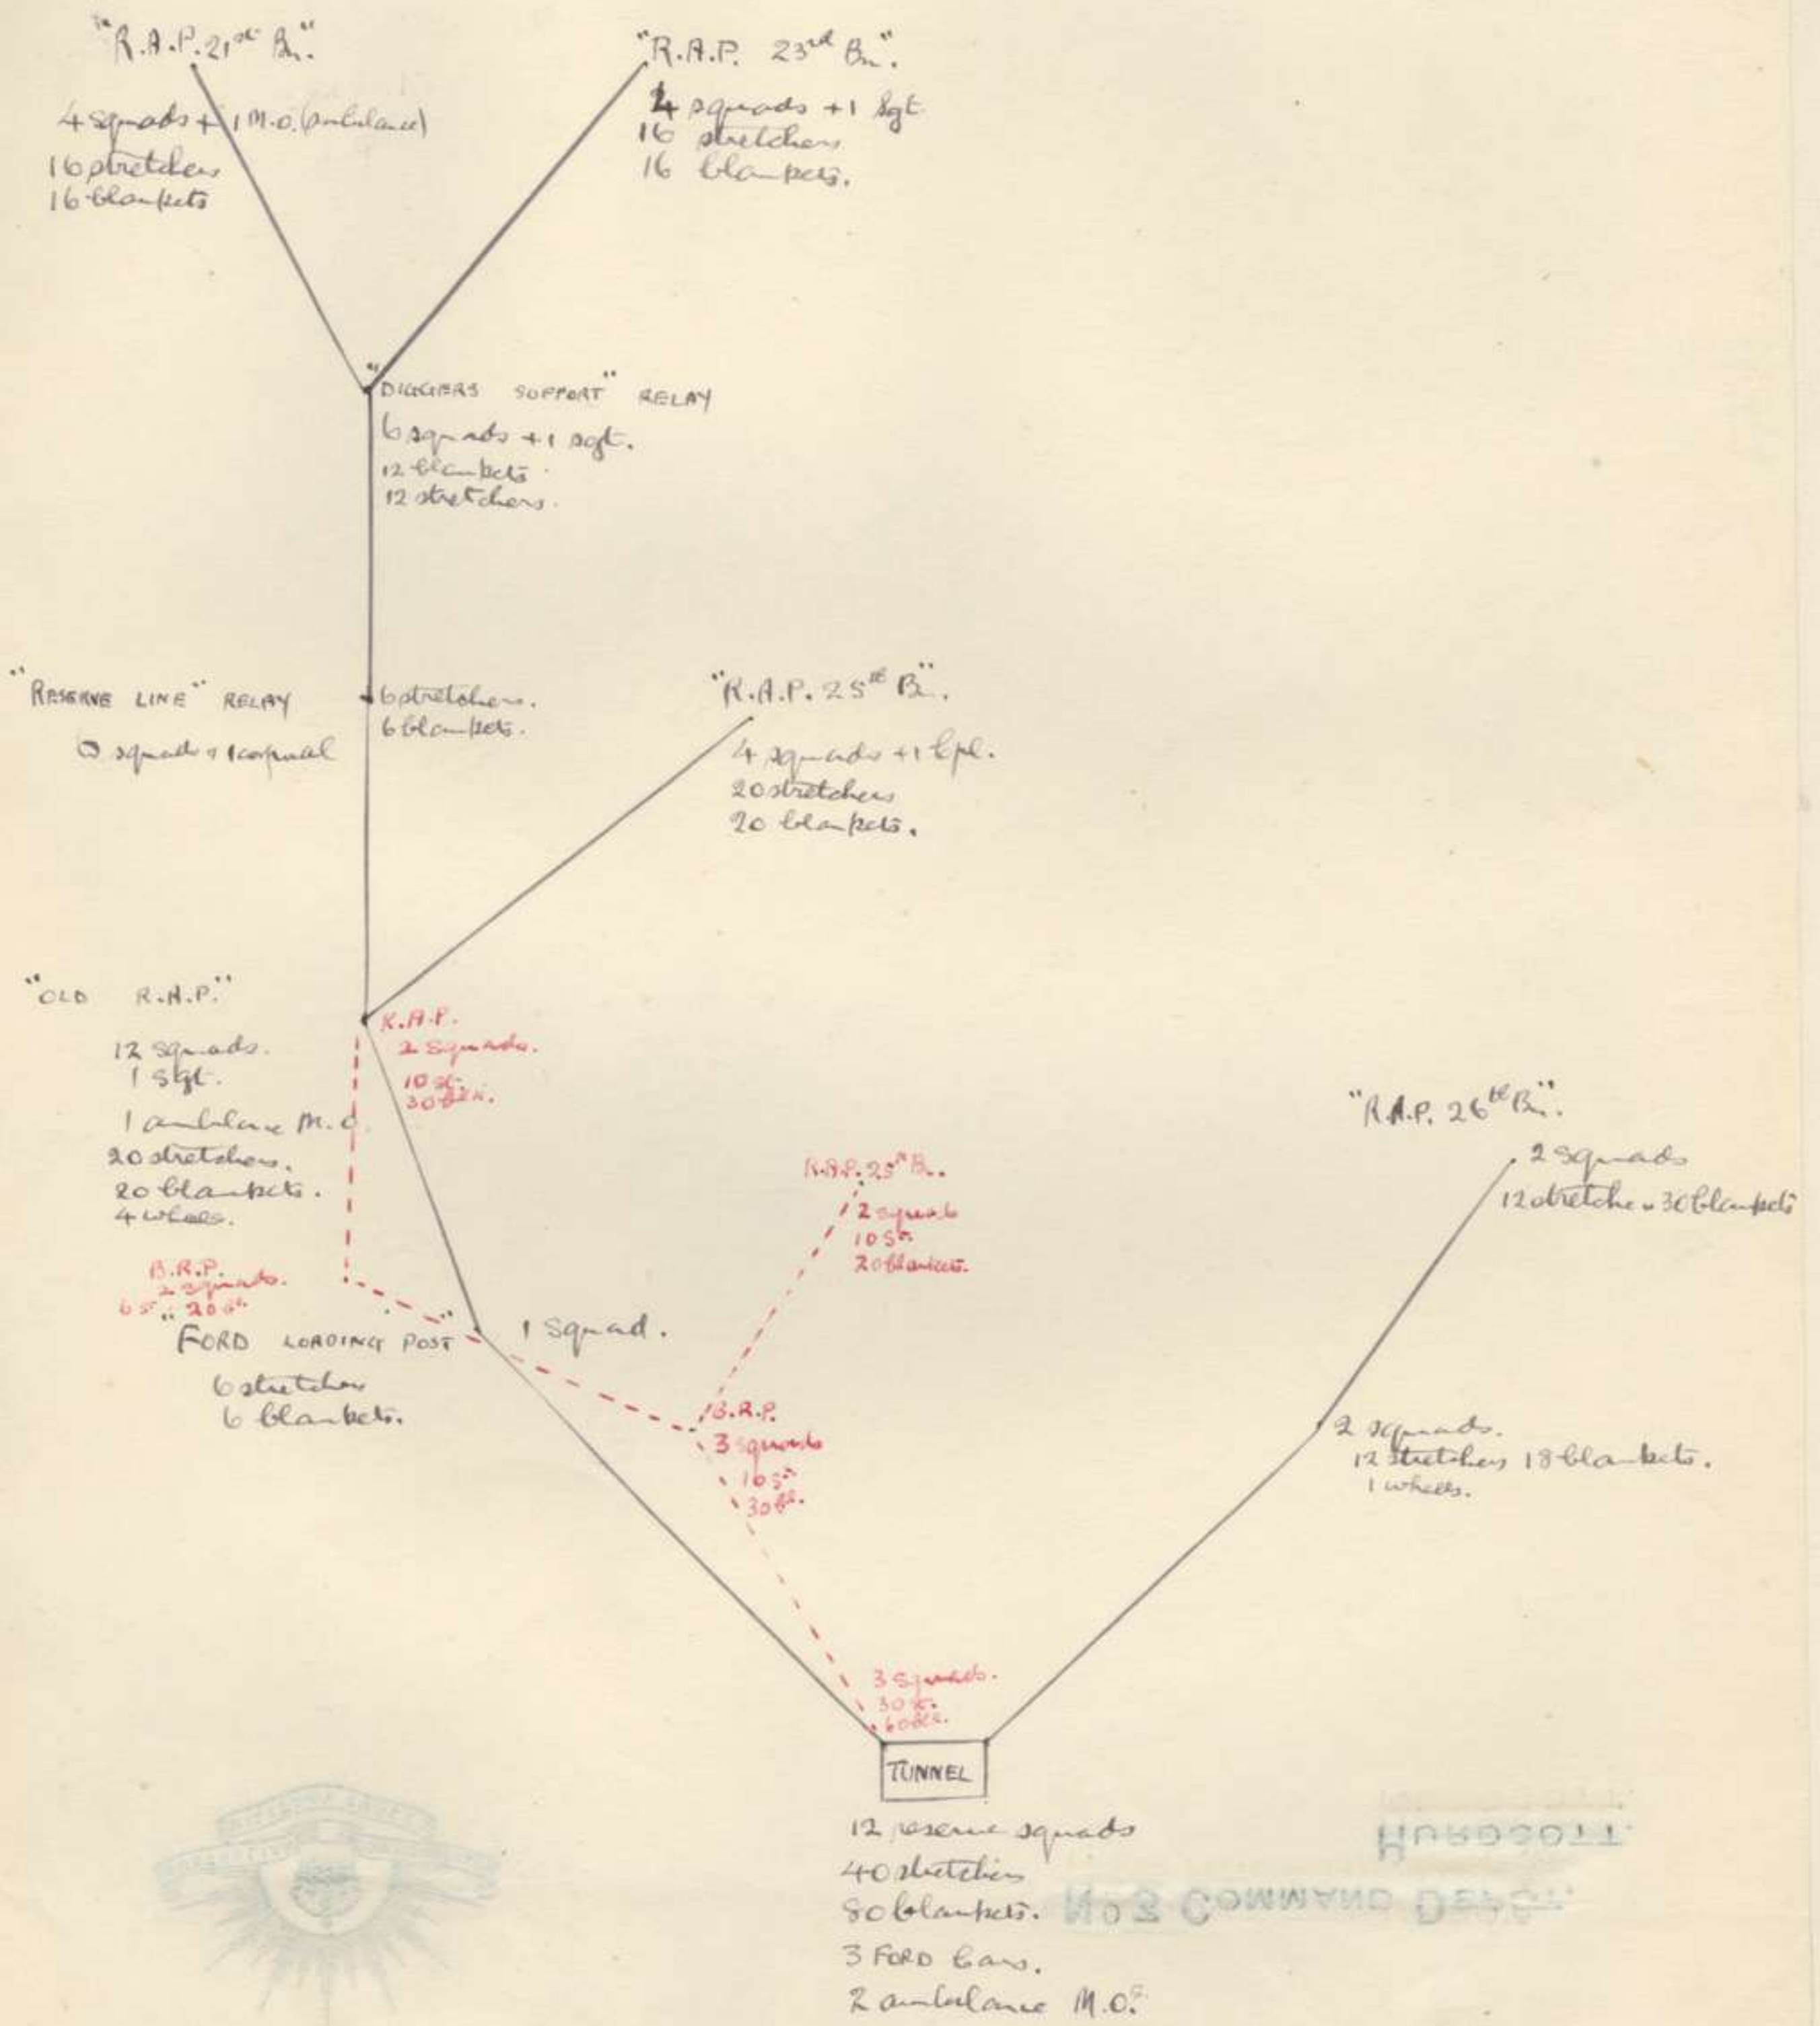 "R.A.P. 21st Bn."
4 squads + 1 M.O. (ambulance)
16 stretchers
16 blankets
"R.A.P. 23rd Bn".
4 squads + 1 Sgt
16 stretchers
16 blankets.
"DIGGERS SUPPORT" RELAY
6 squads + 1 sgt.
12 blankets
12 stretchers.
"RESERVE LINE" RELAY
squads + 1 corporal
6 stretchers.
6 blankets.
"R.A.P. 25th Bn".
4 squads + 1 Cpl.
20 stretchers
20 blankets.
"OLD R.A.P."
12 squads.
1 Sgt.
1 ambulance M.O.
20 stretchers.
20 blankets.
4 wheels.
R.A.P.
2 squads.
10 st.
30 blk.
B.R.P.
2 squads.
6 st. 20
"FORD LOADING POST"
6 stretchers
6 blankets.
1 squad.
R.A.P. 25th Bn.
2 squads
10 St.
20 blankets.
B.R.P.
3 squads
10 St.
30 bl.
"R.A.P. 26th Bn".
2 squads
12 stretchers 30 blankets
2 squads.
12 stretchers 18 blankets.
1 wheels.
3 squads.
30 st.
60 bl.
TUNNEL
12 reserve squads
40 stretchers
80 blankets.
3 FORD Cars.
2 ambulance M.O.s
No 3 COMMAND DEPOT.
HURDCOTT.